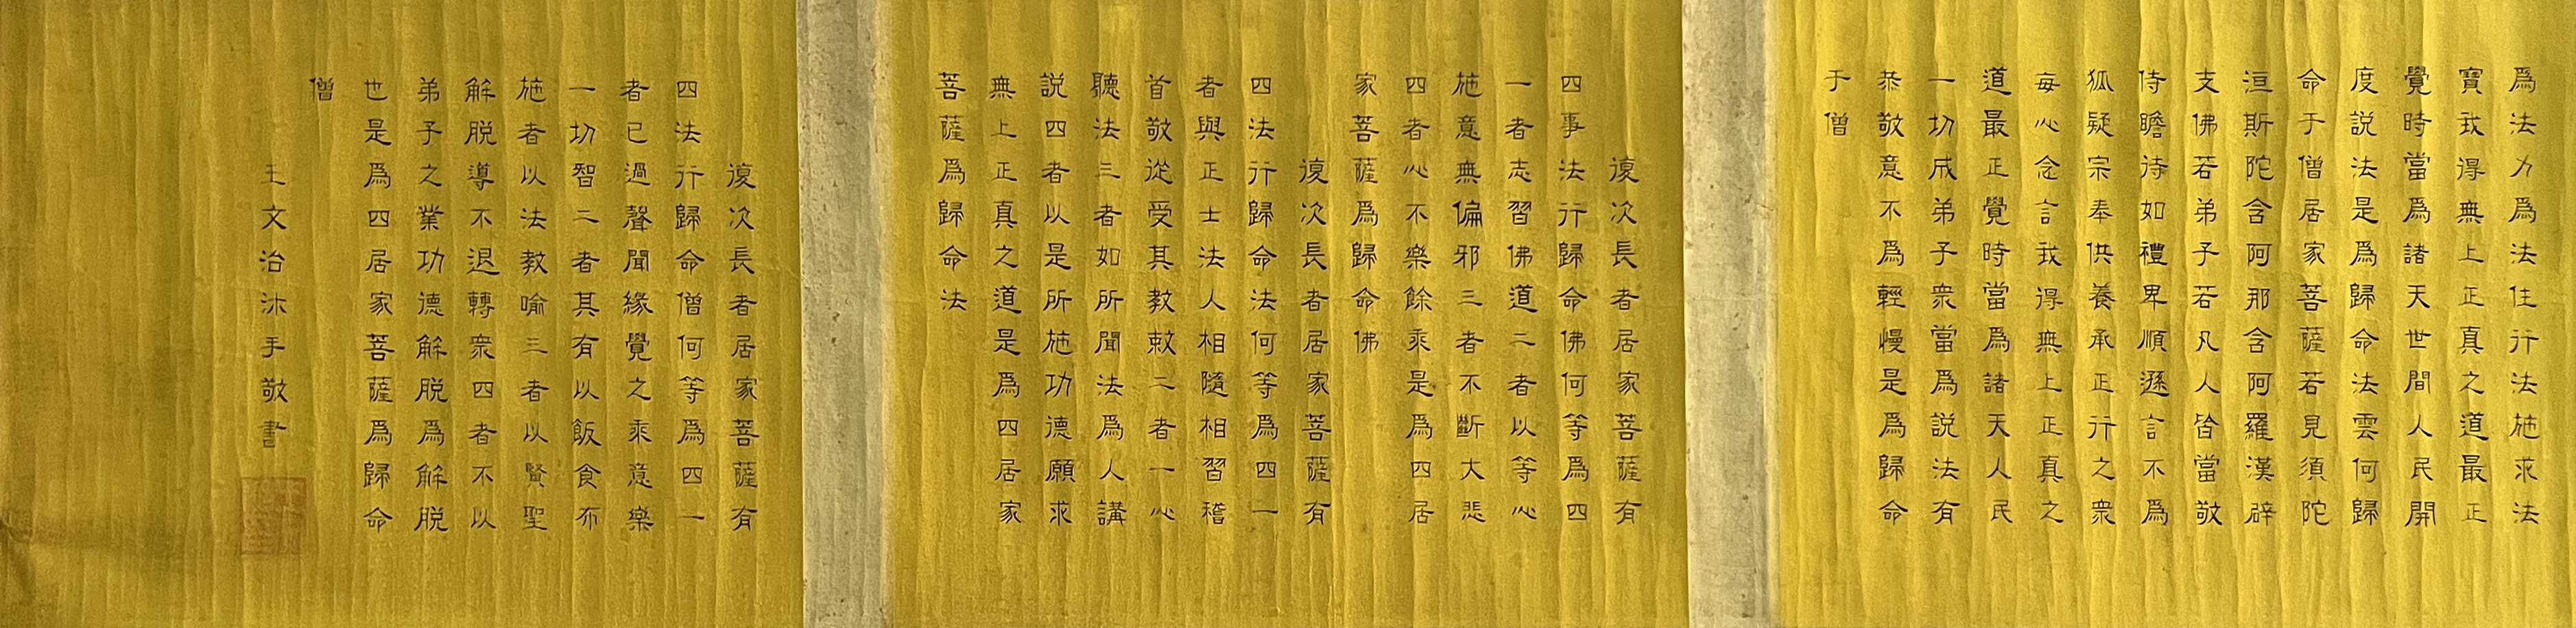 為法力為法住行法施求法
寶我得無上正真之道最正
覺時當為諸天世間人民開
度說法是為歸命法雲何歸
命于僧居家菩薩若見須陀
洹斯陀含阿那含阿羅漢辟
支佛若弟子若凡人皆當敬
侍瞻待如禮卑順遜言不為
狐疑宗奉供養承正行之衆
每心念言我得無上正真之
道最正覺時當為諸天人民
一切成弟子衆當為說法有
恭敬意不為輕慢是為歸命
于僧
復次長者居家菩薩有
四事法行歸命佛何等為四
一者志習佛道二者以等心
施意無偏邪三者不斷大悲
四者心不樂餘乘是為四居
家菩薩為歸命佛
復次長者居家菩薩有
四法行歸命法何等為四一
者與正士法人相隨相習稽
首敬從受其教敕二者一心
聽法三者如所聞法為人講
說四者以是所施功德願求
無上正真之道是為四居家
菩薩為歸命法
復次長者居家菩薩有
四法行歸命僧何等為四一
者已過聲聞緣覺之乘意樂
一切智二者其有以飯食布
施者以法教喻三者以賢聖
解脫導不退轉衆四者不以
弟子之業功德解脫為解脫
也是為四居家菩薩為歸命
僧
王文治沐手敬書